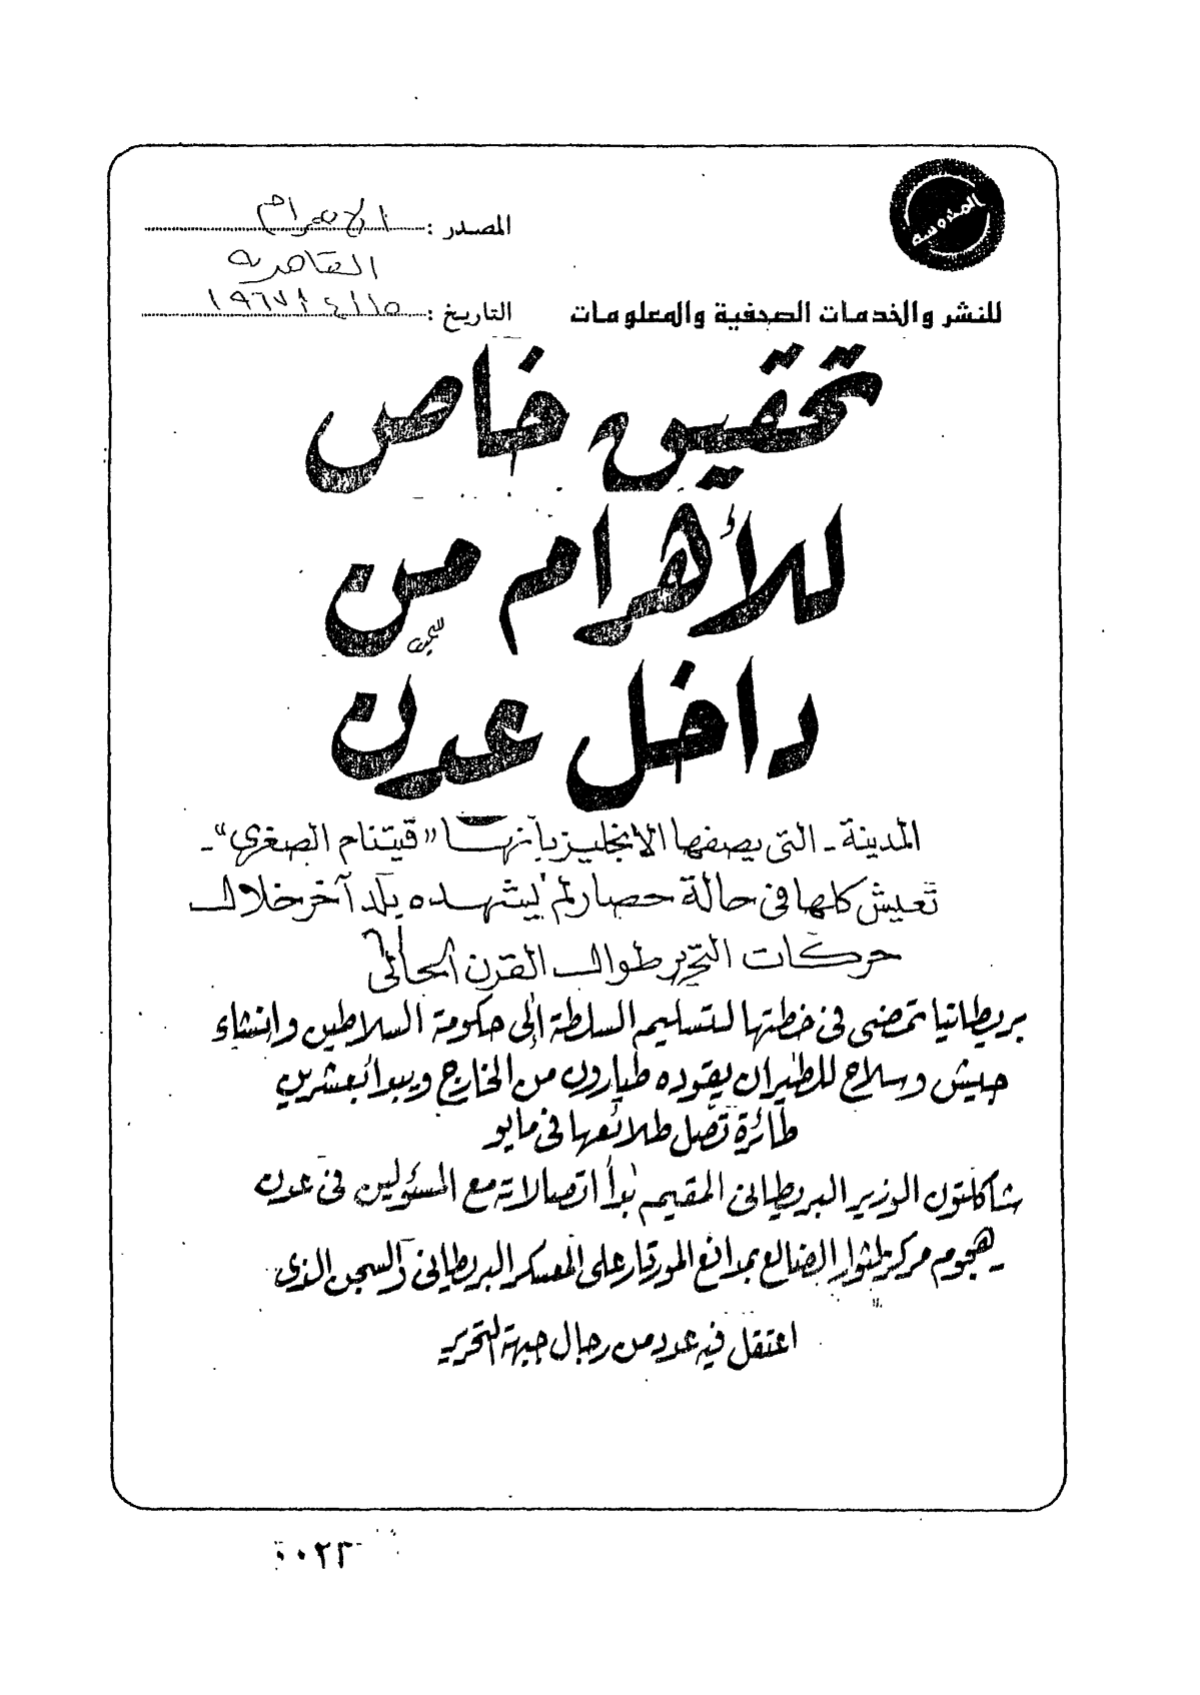 المحروسة
المصدر : الاهرام
القاهرية
للنشر والخدمات الصحفية والمعلومات
التاريخ : ١٥/٤/١٩٦٧
تحقيق خاص
للأهرام من
داخل عدن
المدينة - التى يصفها الانجليز بأنها "ڤيتنام الصغرى" -
تعيش كلها فى حالة حصار لم يشهده بلد آخر خلال
حركات التحرير طوال القرن الحالى
بريطانيا تمضى فى خطتها لتسليم السلطة إلى حكومة السلاطين وإنشاء
جيش وسلاح للطيران يقوده طيارون من الخارج ويبدأ بعشرين
طائرة تصل طلائعها فى مايو
شاكلتون الوزير البريطانى المقيم بدأ اتصالاته مع المسئولين فى عدن
هجوم مركز لثوار الضالع بمدافع المورتار على المعسكر البريطانى والسجن الذى
اعتقل فيه عدد من رجال جبهة التحرير
٠٢٢